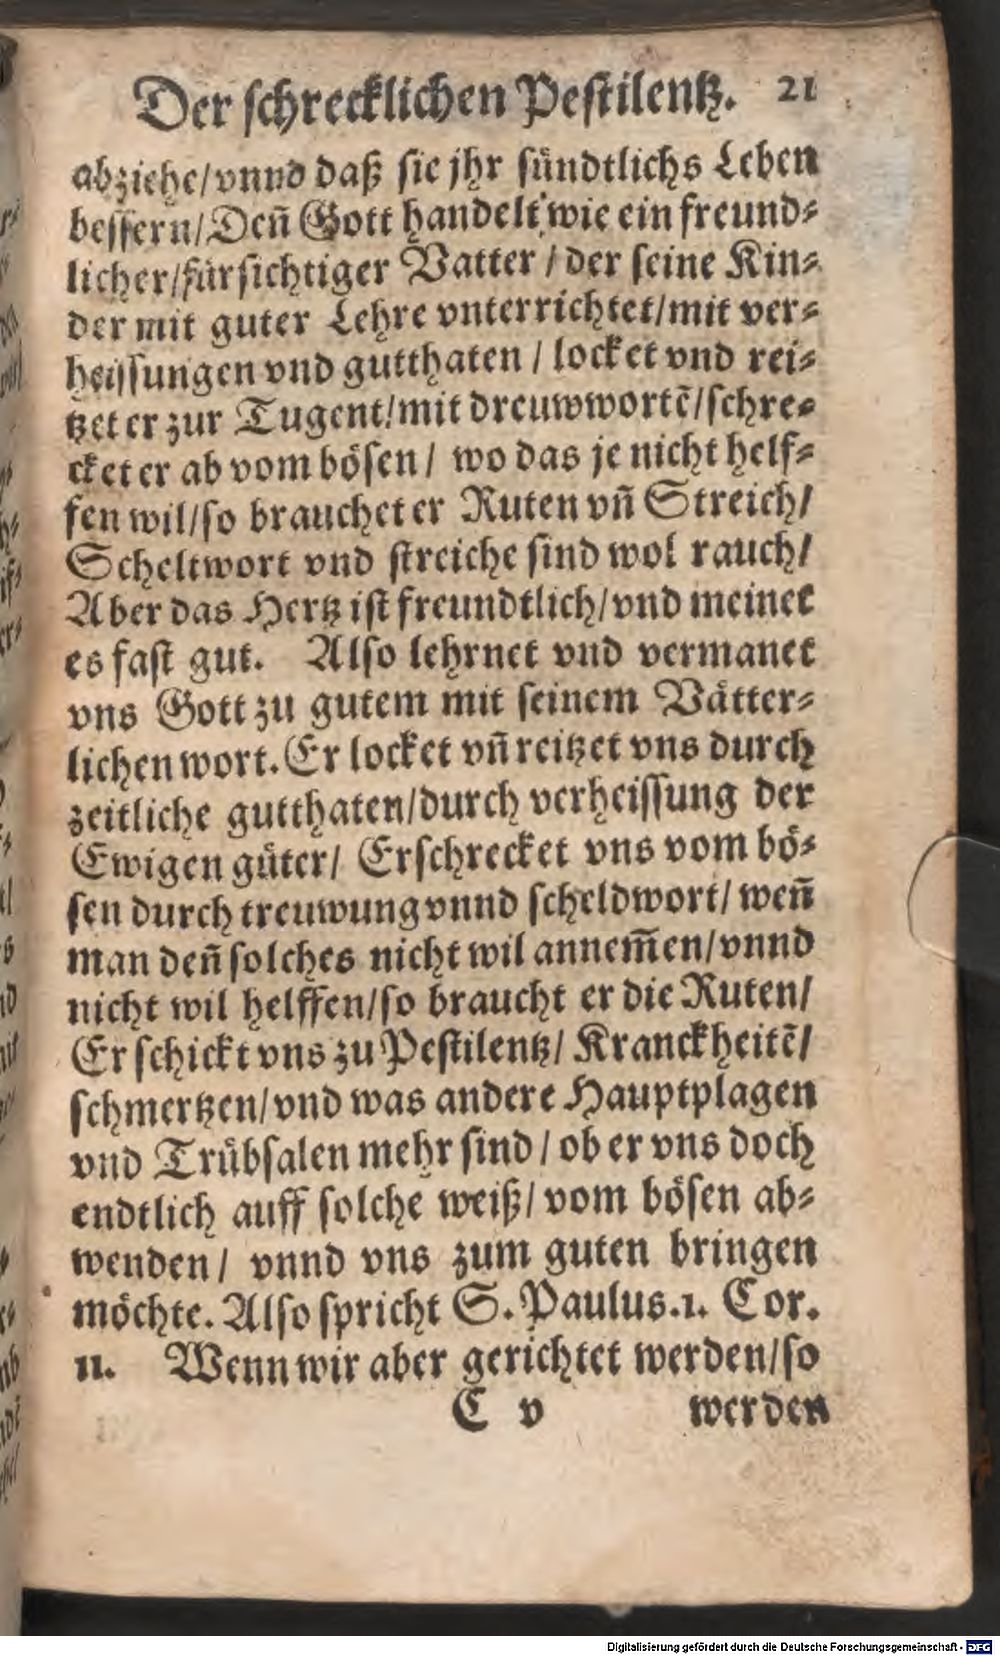 Der schrecklichen Pestilentz. 21
abziehe/vnnd daß sie jhr sündtlichs Leben
bessern/Deñ Gott handelt wie ein freund-
licher/fürsichtiger Vatter / der seine Kin-
der mit guter Lehre vnterrichtet/mit ver-
heissungen vnd gutthaten / locket vnd rei-
tzet er zur Tugent/mit dreuwwortẽ/schre-
cket er ab vom bösen / wo das je nicht helf-
fen wil/so brauchet er Ruten vñ Streich/
Scheltwort vnd streiche sind wol rauch/
Aber das Hertz ist freundtlich/vnd meinet
es fast gut. Also lehrnet vnd vermanet
vns Gott zu gutem mit seinem Vätter-
lichen wort. Er locket vñ reitzet vns durch
zeitliche gutthaten/durch verheissung der
Ewigen güter/ Erschrecket vns vom bö-
sen durch treuwung vnnd scheldwort/ weñ
man deñ solches nicht wil annem̃en/vnnd
nicht wil helffen/so braucht er die Ruten/
Er schickt vns zu Pestilentz/ Kranckheitẽ/
schmertzen/vnd was andere Hauptplagen
vnd Trübsalen mehr sind / ob er vns doch
endtlich auff solche weiß/ vom bösen ab-
wenden / vnnd vns zum guten bringen
möchte. Also spricht S. Paulus.1. Cor.
11. Wenn wir aber gerichtet werden/so
C v werden
Digitalisierung gefördert durch die Deutsche Forschungsgemeinschaft - DFG